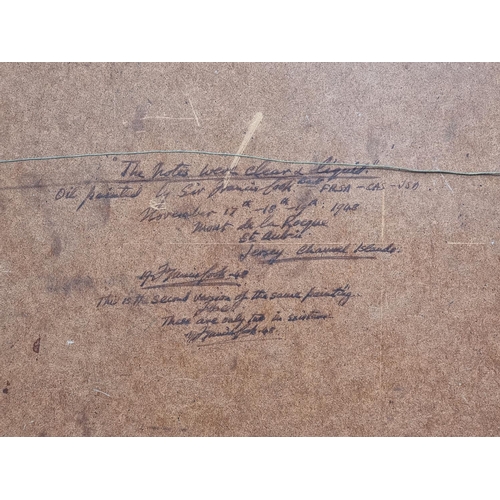 "The Notes were clear & liquid."
Oil painted by Sir Francis Cook Bart FRSA - CAS - JSA.
November 17th - 18th - 19th. 1948
Mont de la Rocque
St Aubin
Jersey Channel Islands.
Francis Cook - 48
This is the second version of the same painting.
There are only two in existence
Francis Cook - 48.